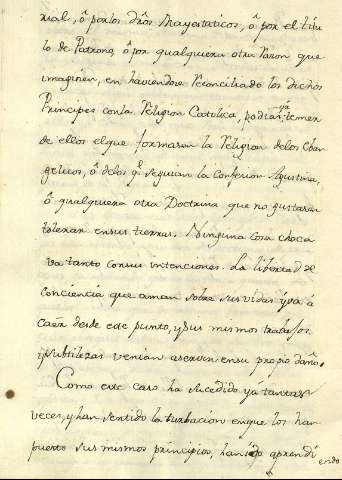 rial, ô por los dr̃os Mayestaticos, ô por el titu
lo de Patrono, ô por qualquiera otra razon que
imaginen, en haviendose reconciliado los dichos
Principes con la religion Catolica, podian ya temer
de ellos el que formasen la religion de los Eban
gelicos, ô de los q̃ seguian la Confesion Agustana,
ô qualquiera otra Doctrina que no gustasen
tolerar en sus tierras. Ninguna cosa choca
va tanto con sus intenciones. La libertad de
conciencia que aman sobre sus vidas yva á
caer desde este punto, y sus mismos trabajos
y subtilezas venian a servir en su propio daño.
Como este caso ha sucedido yá tantas
veces, y han sentido la turbacion en que los han
puesto sus mismos principios, han ido aprendi
endo